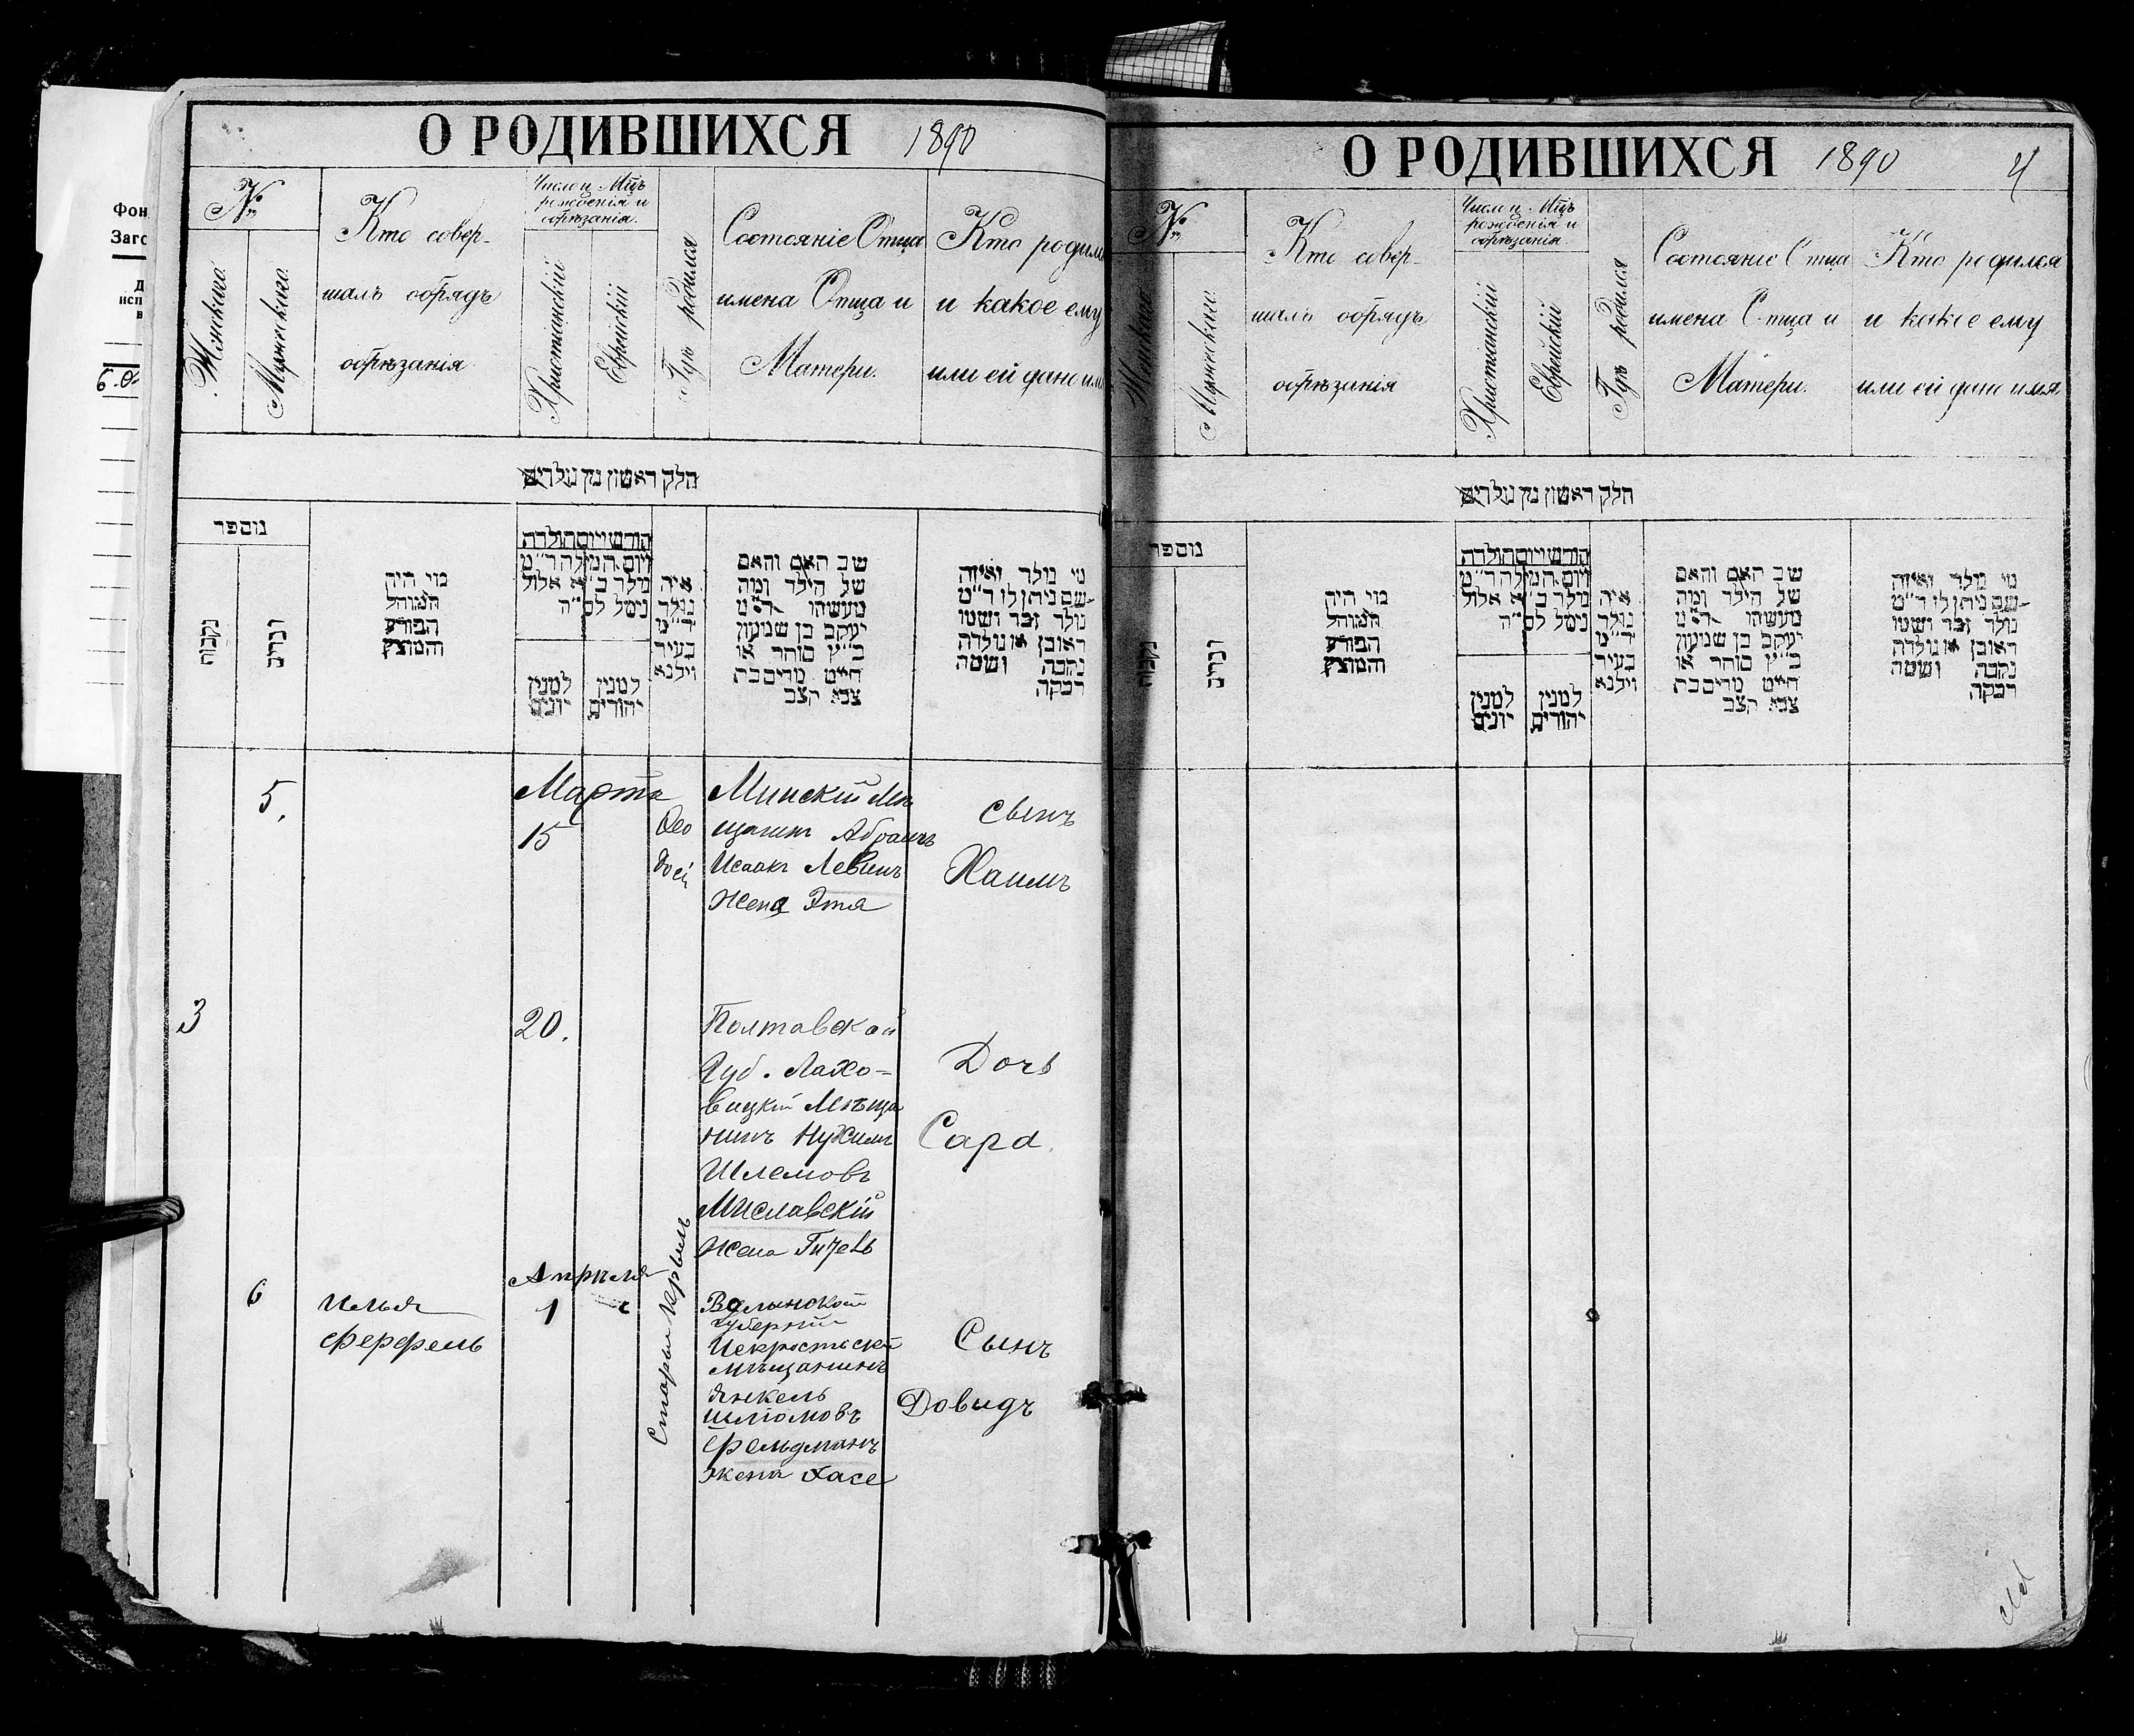 Фон
Загс
О РОДИВШИХСЯ 1890
№
Женскаго.
Мужескаго.
Кто совер-
шалъ обрядъ
обрѣзанія
Число и Мѣцъ
рожденія и
обрѣзанія.
Христіанскій
Еврейскій
Гдѣ родился
Состояніе Отца
имена Отца и
Матери.
Кто родился
и какое ему
или ей дано имя
חלק ראשון מן נולדים
נומפר
נקבות
זכרים
מי היה
המוהל
הפורע
והמוצץ
חודש ויום הולדה
ויום המילה ד״מ
נולד ב״א אלול
נימל לס״ה
למנין
יונים
למנין
יהודים
איה
נולד
ד״מ
בעיר
ווילנא
שב האב והאם
של הילד ומה
מעשהו ד״מ
יעקב בן שמעון
כ״ץ סוחר או
חייט מרים בת
צבא קצב
מי נולד ואיזה
שם ניתן לו ד״מ
נולד זכר ושמו
ראובן או נולדה
נקבה ושמה
רבקה
5.
Марта
15
Ѳео
досі
Минскій мѣ
щанин Абрамъ
Исаакъ Левинъ
Жена Этя
сынъ
Хаимъ
3
20.
Полтавской
Губ. Лахо-
вицкій Мѣща
нинъ Нухимъ
Шлемовъ
Миславскій
Жена Гитель
Дочь
Сара.
6
Илья
Ферфель
Апрѣля
1
Старый Керыль
Волынской
губерніи
мѣщанинъ
Янкель
Шліомовъ
Фельдманъ
жена Хасе
Сынъ
Довидъ
О РОДИВШИХСЯ 1890
4
№
Женскаго.
Мужескаго.
Кто совер-
шалъ обрядъ
обрѣзанія
Число и Мѣцъ
рожденія и
обрѣзанія.
Христіанскій
Еврейскій
Гдѣ родился
Состояніе Отца
имена Отца и
Матери.
Кто родился
и какое ему
или ей дано имя.
חלק ראשון מן נולדים
נומפר
נקבות
זכרים
מי היה
המוהל
הפורע
והמוצץ
חודש ויום הולדה
ויום המילה ד״מ
נולד ב״א אלול
נימל לס״ה
למנין
יונים
למנין
יהודים
איה
נולד
ד״מ
בעיר
ווילנא
שב האב והאם
של הילד ומה
מעשהו ד״מ
יעקב בן שמעון
כ״ץ סוחר או
חייט מרים בת
צבא קצב
מי נולד ואיזה
שם ניתן לו ד״מ
נולד זכר ושמו
ראובן או נולדה
נקבה ושמה
רבקה